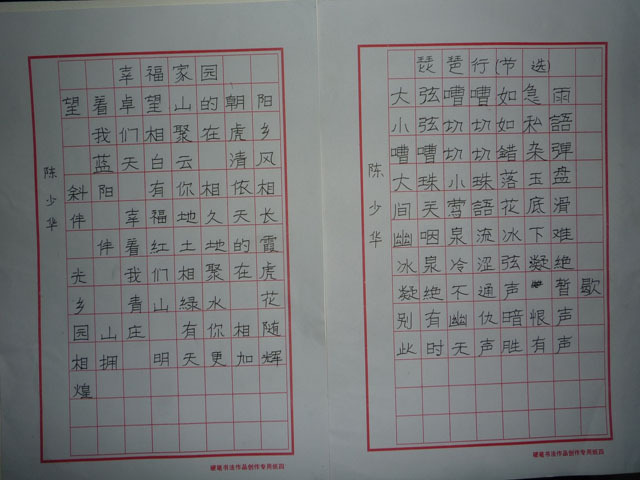 幸福家园
望着卓望山的朝阳
我们相聚在虎乡
蓝天白云 清风
斜阳 有你相依相
伴 幸福地久天长
伴着红土地的霞
光 我们相聚在虎
乡 青山绿水 花
园山庄 有你相随
相拥 明天更加辉
煌
陈少华
硬笔书法作品创作专用纸四
琵琶行(节选)
大弦嘈嘈如急雨
小弦切切如私語
嘈嘈切切錯杂弹
大珠小珠落玉盘
间关莺語花底滑
幽咽泉流冰下难
冰泉冷涩弦凝绝
凝绝不通声 暂歇
别有幽仇暗恨声
此时无声胜有声
陈少华
硬笔书法作品创作专用纸四